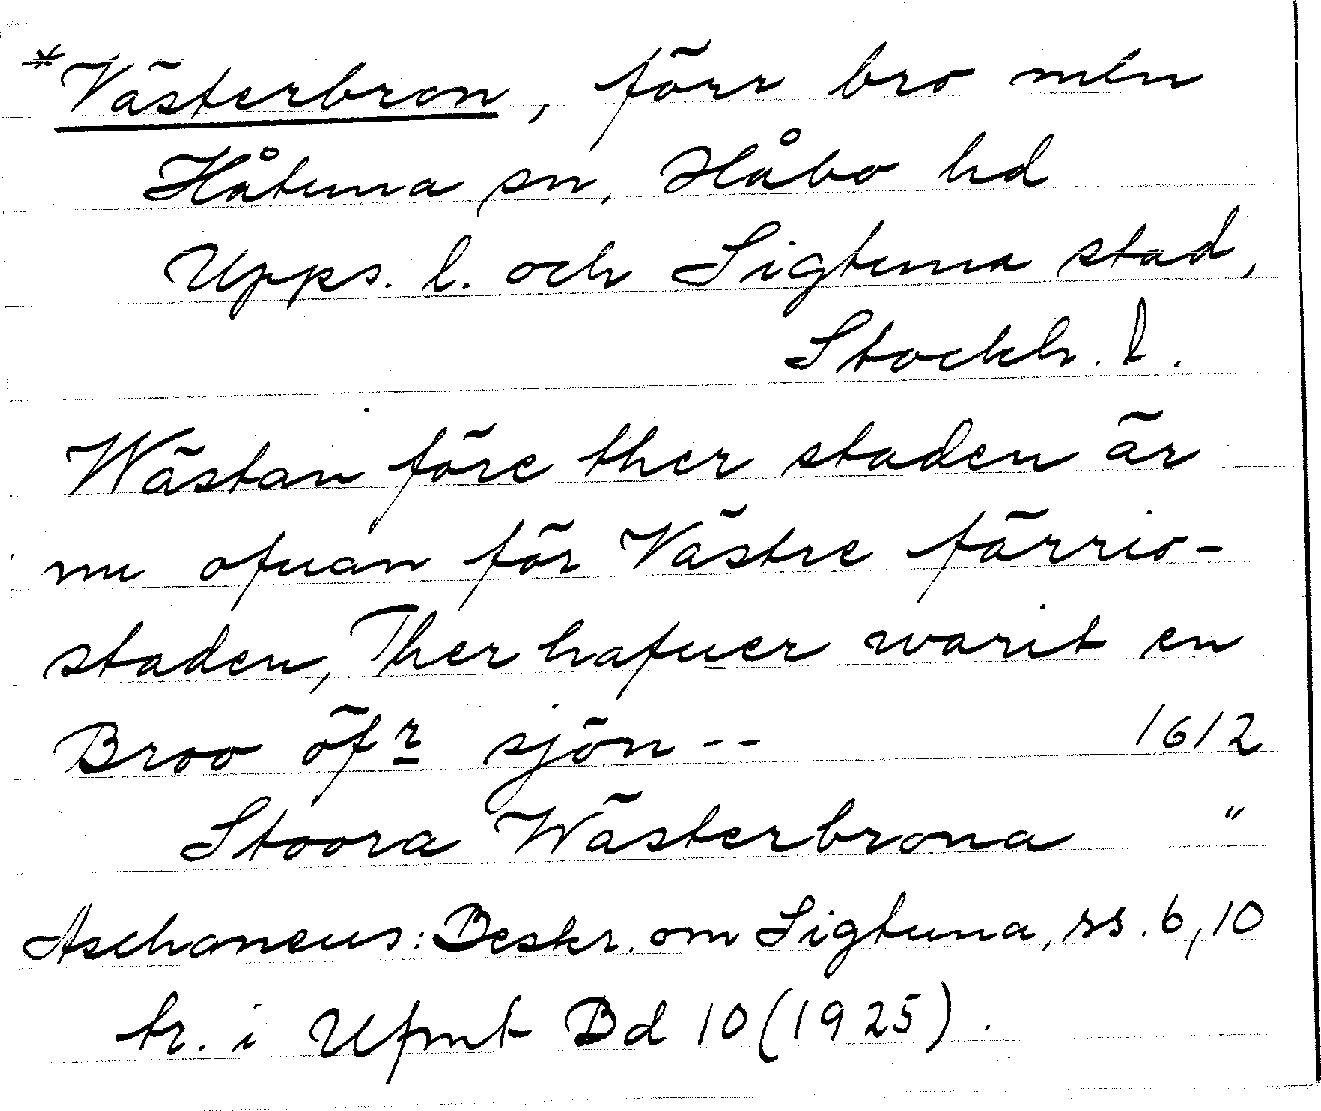 *Västerbron, förr bro mln
Håtuna sn, Håbo hd
Upps. l. och Sigtuna stad,
Stockh. l.
Wästan före ther staden är
nu ofuan för Västre färrio-
staden, Ther hafuer warit en
Broo öfr sjön -- 1612
Stoora Wästerbrona "
Aschaneus: Beskr. om Sigtuna, ss. 6, 10
tr. i Ufmt Bd 10 (1925).